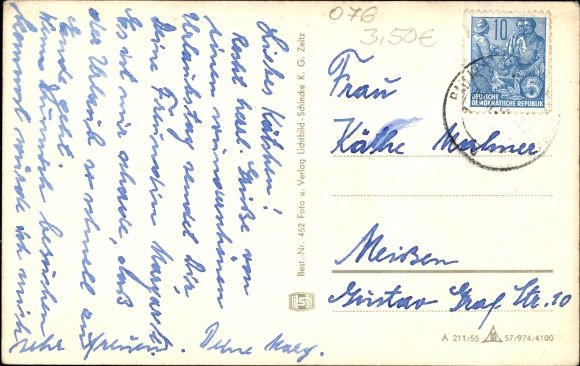 Liebes Käthchen!
Recht herzl. Grüße von
einem wunderschönen
Urlaubstag sendet Dir
Deine Freundin Margarete.
Es ist nur schade, daß
der Urlaub so schnell zu
Ende geht.
kommst würde ich mich
sehr freuen. Deine Marg.
Best.-Nr. 452 Foto u. Verlag Lichtbild-Schincke K. G. Zeitz
076
3,50€
10
DEUTSCHE
DEMOKRATISCHE REPUBLIK
Frau
Käthe
Meißen
Gustav Graf Str. 10
A 211/55 57/974/4100